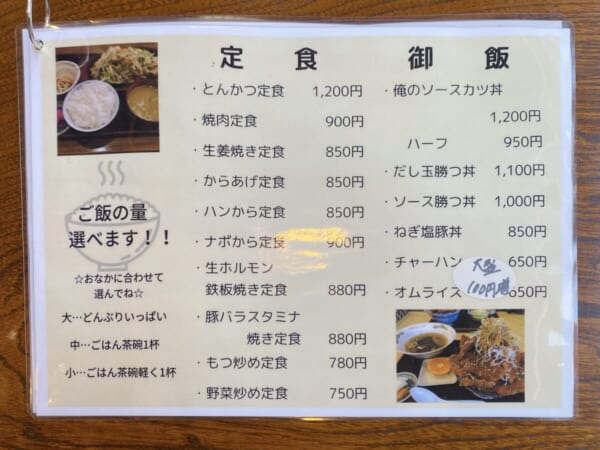 定食
・とんかつ定食 1,200円
・焼肉定食 900円
・生姜焼き定食 850円
・からあげ定食 850円
・ハンから定食 850円
・ナポから定食 900円
・生ホルモン
鉄板焼き定食 880円
・豚バラスタミナ
焼き定食 880円
・もつ炒め定食 780円
・野菜炒め定食 750円
御飯
・俺のソースカツ丼
1,200円
ハーフ 950円
・だし玉勝つ丼 1,100円
・ソース勝つ丼 1,000円
・ねぎ塩豚丼 850円
・チャーハン 650円
大盛
100円増
・オムライス 650円
ご飯の量
選べます!!
☆おなかに合わせて
選んでね☆
大…どんぶりいっぱい
中…ごはん茶碗1杯
小…ごはん茶碗軽く1杯